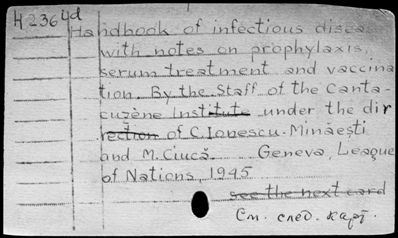 H 2364d
Handbook of infectious disea
with notes on prophylaxis,
serum treatment and vaccina
tion. By the Staff of the Canta-
cuzène Institute under the dir
ection of C. Ionescu-Minăești
and M. Ciucă. Geneva, League
of Nations, 1945
see the next card
См. след. карт.